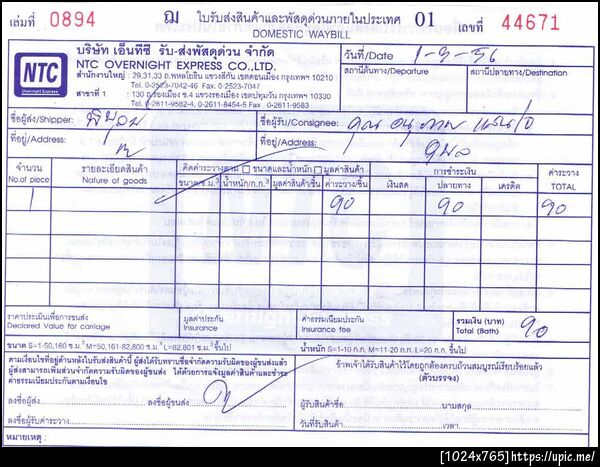 เล่มที่ 0894 ฌ ใบรับส่งสินค้าและพัสดุด่วนภายในประเทศ 01 เลขที่ 44671
DOMESTIC WAYBILL
NTC Overnight Express
บริษัท เอ็นทีซี รับ-ส่งพัสดุด่วน จำกัด
NTC OVERNIGHT EXPRESS CO.,LTD.
สำนักงานใหญ่ : 29,31,33 ถ.พหลโยธิน แขวงสีกัน เขตดอนเมือง กรุงเทพฯ 10210
Tel. 0-2523-7042-46 Fax. 0-2523-7047
สาขาที่ 1 : 130 ถ.รองเมือง ซ.4 แขวงรองเมือง เขตปทุมวัน กรุงเทพฯ 10330
Tel. 0-2611-9582-4, 0-2611-8454-5 Fax 0-2611-9583
วันที่/Date 1-3-56
สถานีต้นทาง/Departure สถานีปลายทาง/Destination
ชื่อผู้ส่ง/Shipper: ชื่อผู้รับ/Consignee:
ที่อยู่/Address: ที่อยู่/Address:
จำนวน รายละเอียดสินค้า คิดค่าระวางตาม ขนาดและน้ำหนัก มูลค่าสินค้า การชำระเงิน ค่าระวาง
No.of piece Nature of goods ขนาด ซ.ม.³ น้ำหนัก/ก.ก. มูลค่าสินค้า/ชิ้น ค่าระวาง/ชิ้น เงินสด ปลายทาง เครดิต TOTAL
1 90 90 90
ราคาประเมินเพื่อการขนส่ง มูลค่าประกัน ค่าธรรมเนียมประกัน รวมเงิน (บาท) 90
Declared Value for carriage Insurance Insurance fee Total (Bath)
ขนาด S=1-50,160 ซ.ม.³ M=50,161-82,800 ซ.ม.³ L=82,801 ซ.ม.³ขึ้นไป น้ำหนัก S=1-10 ก.ก. M=11-20 ก.ก. L=20 ก.ก. ขึ้นไป
ตามเงื่อนไขที่อยู่ด้านหลังใบรับส่งสินค้านี้ ผู้ส่งได้รับทราบข้อจำกัดความรับผิดของผู้ขนส่งแล้ว
ผู้ส่งสามารถเพิ่มส่วนจำกัดความรับผิดของผู้ขนส่ง ได้ด้วยการแจ้งมูลค่าสินค้าและชำระ
ค่าธรรมเนียมประกันตามเงื่อนไข
ลงชื่อผู้ส่ง ลงชื่อผู้ขนส่ง
ลงชื่อผู้รับค่าระวาง
ข้าพเจ้าได้รับสินค้าไว้โดยถูกต้องครบถ้วนสมบูรณ์เรียบร้อยแล้ว
(ตัวบรรจง)
ผู้รับสินค้าชื่อ นามสกุล
วันที่รับสินค้า เวลา
หมายเหตุ :
[1024x765]https://upic.me/